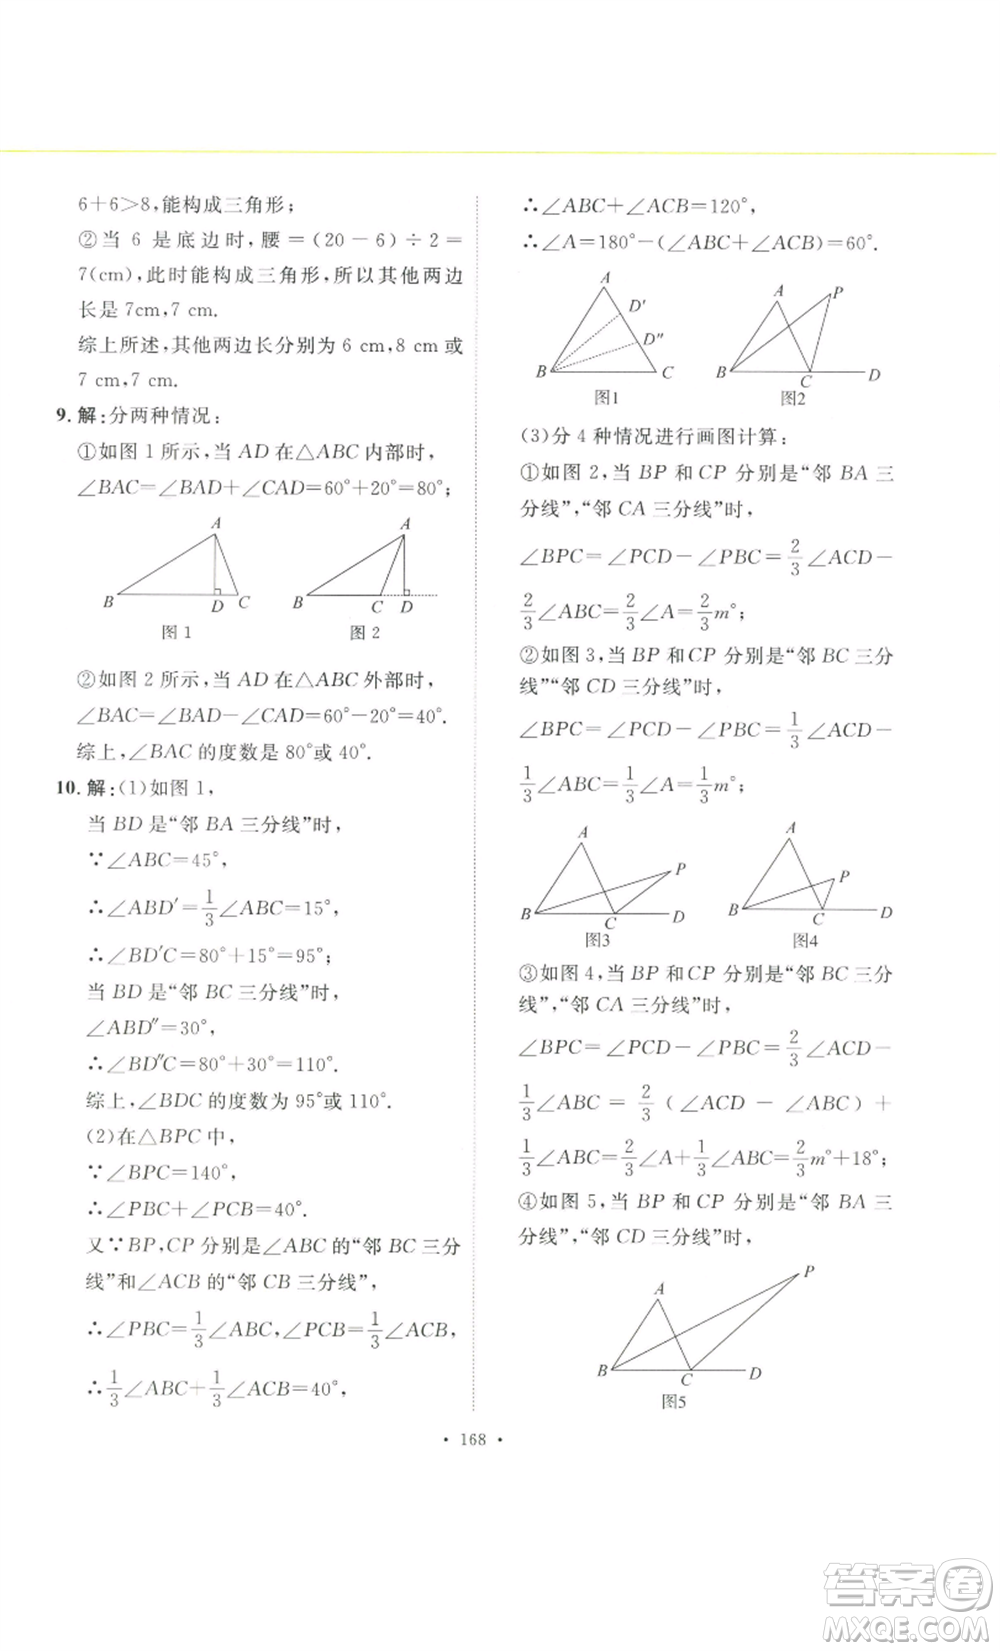 6+6>8,能构成三角形;
②当 6 是底边时,腰=(20-6)÷2=
7(cm),此时能构成三角形,所以其他两边
长是 7cm,7 cm.
综上所述,其他两边长分别为 6 cm,8 cm 或
7 cm,7 cm.
9. 解:分两种情况:
①如图 1 所示,当 AD 在△ABC 内部时,
∠BAC=∠BAD+∠CAD=60°+20°=80°;
A
B D C
图 1
A
B C D
图 2
②如图 2 所示,当 AD 在△ABC 外部时,
∠BAC=∠BAD-∠CAD=60°-20°=40°.
综上,∠BAC 的度数是 80°或 40°.
10. 解:(1)如图 1,
当 BD 是“邻 BA 三分线”时,
∵∠ABC=45°,
∴∠ABD′=1/3∠ABC=15°,
∴∠BD′C=80°+15°=95°;
当 BD 是“邻 BC 三分线”时,
∠ABD″=30°,
∴∠BD″C=80°+30°=110°.
综上,∠BDC 的度数为 95°或 110°.
(2)在△BPC 中,
∵∠BPC=140°,
∴∠PBC+∠PCB=40°.
又∵BP,CP 分别是∠ABC 的“邻 BC 三分
线”和∠ACB 的“邻 CB 三分线”,
∴∠PBC=1/3∠ABC,∠PCB=1/3∠ACB,
∴1/3∠ABC+1/3∠ACB=40°,
∴∠ABC+∠ACB=120°,
∴∠A=180°-(∠ABC+∠ACB)=60°.
A
D′
D″
B C
图1
A P
B C D
图2
(3)分 4 种情况进行画图计算:
①如图 2,当 BP 和 CP 分别是“邻 BA 三
分线”,“邻 CA 三分线”时,
∠BPC=∠PCD-∠PBC=2/3∠ACD-
2/3∠ABC=2/3∠A=2/3m°;
②如图 3,当 BP 和 CP 分别是“邻 BC 三分
线”“邻 CD 三分线”时,
∠BPC=∠PCD-∠PBC=1/3∠ACD-
1/3∠ABC=1/3∠A=1/3m°;
A
P
B C D
图3
A
P
B C D
图4
③如图 4,当 BP 和 CP 分别是“邻 BC 三分
线”,“邻 CA 三分线”时,
∠BPC=∠PCD-∠PBC=2/3∠ACD-
1/3∠ABC=2/3(∠ACD-∠ABC)+
1/3∠ABC=2/3∠A+1/3∠ABC=2/3m°+18°;
④如图 5,当 BP 和 CP 分别是“邻 BA 三
分线”,“邻 CD 三分线”时,
P
A
B C D
图5
• 168 •
答案圈
MXQE.COM